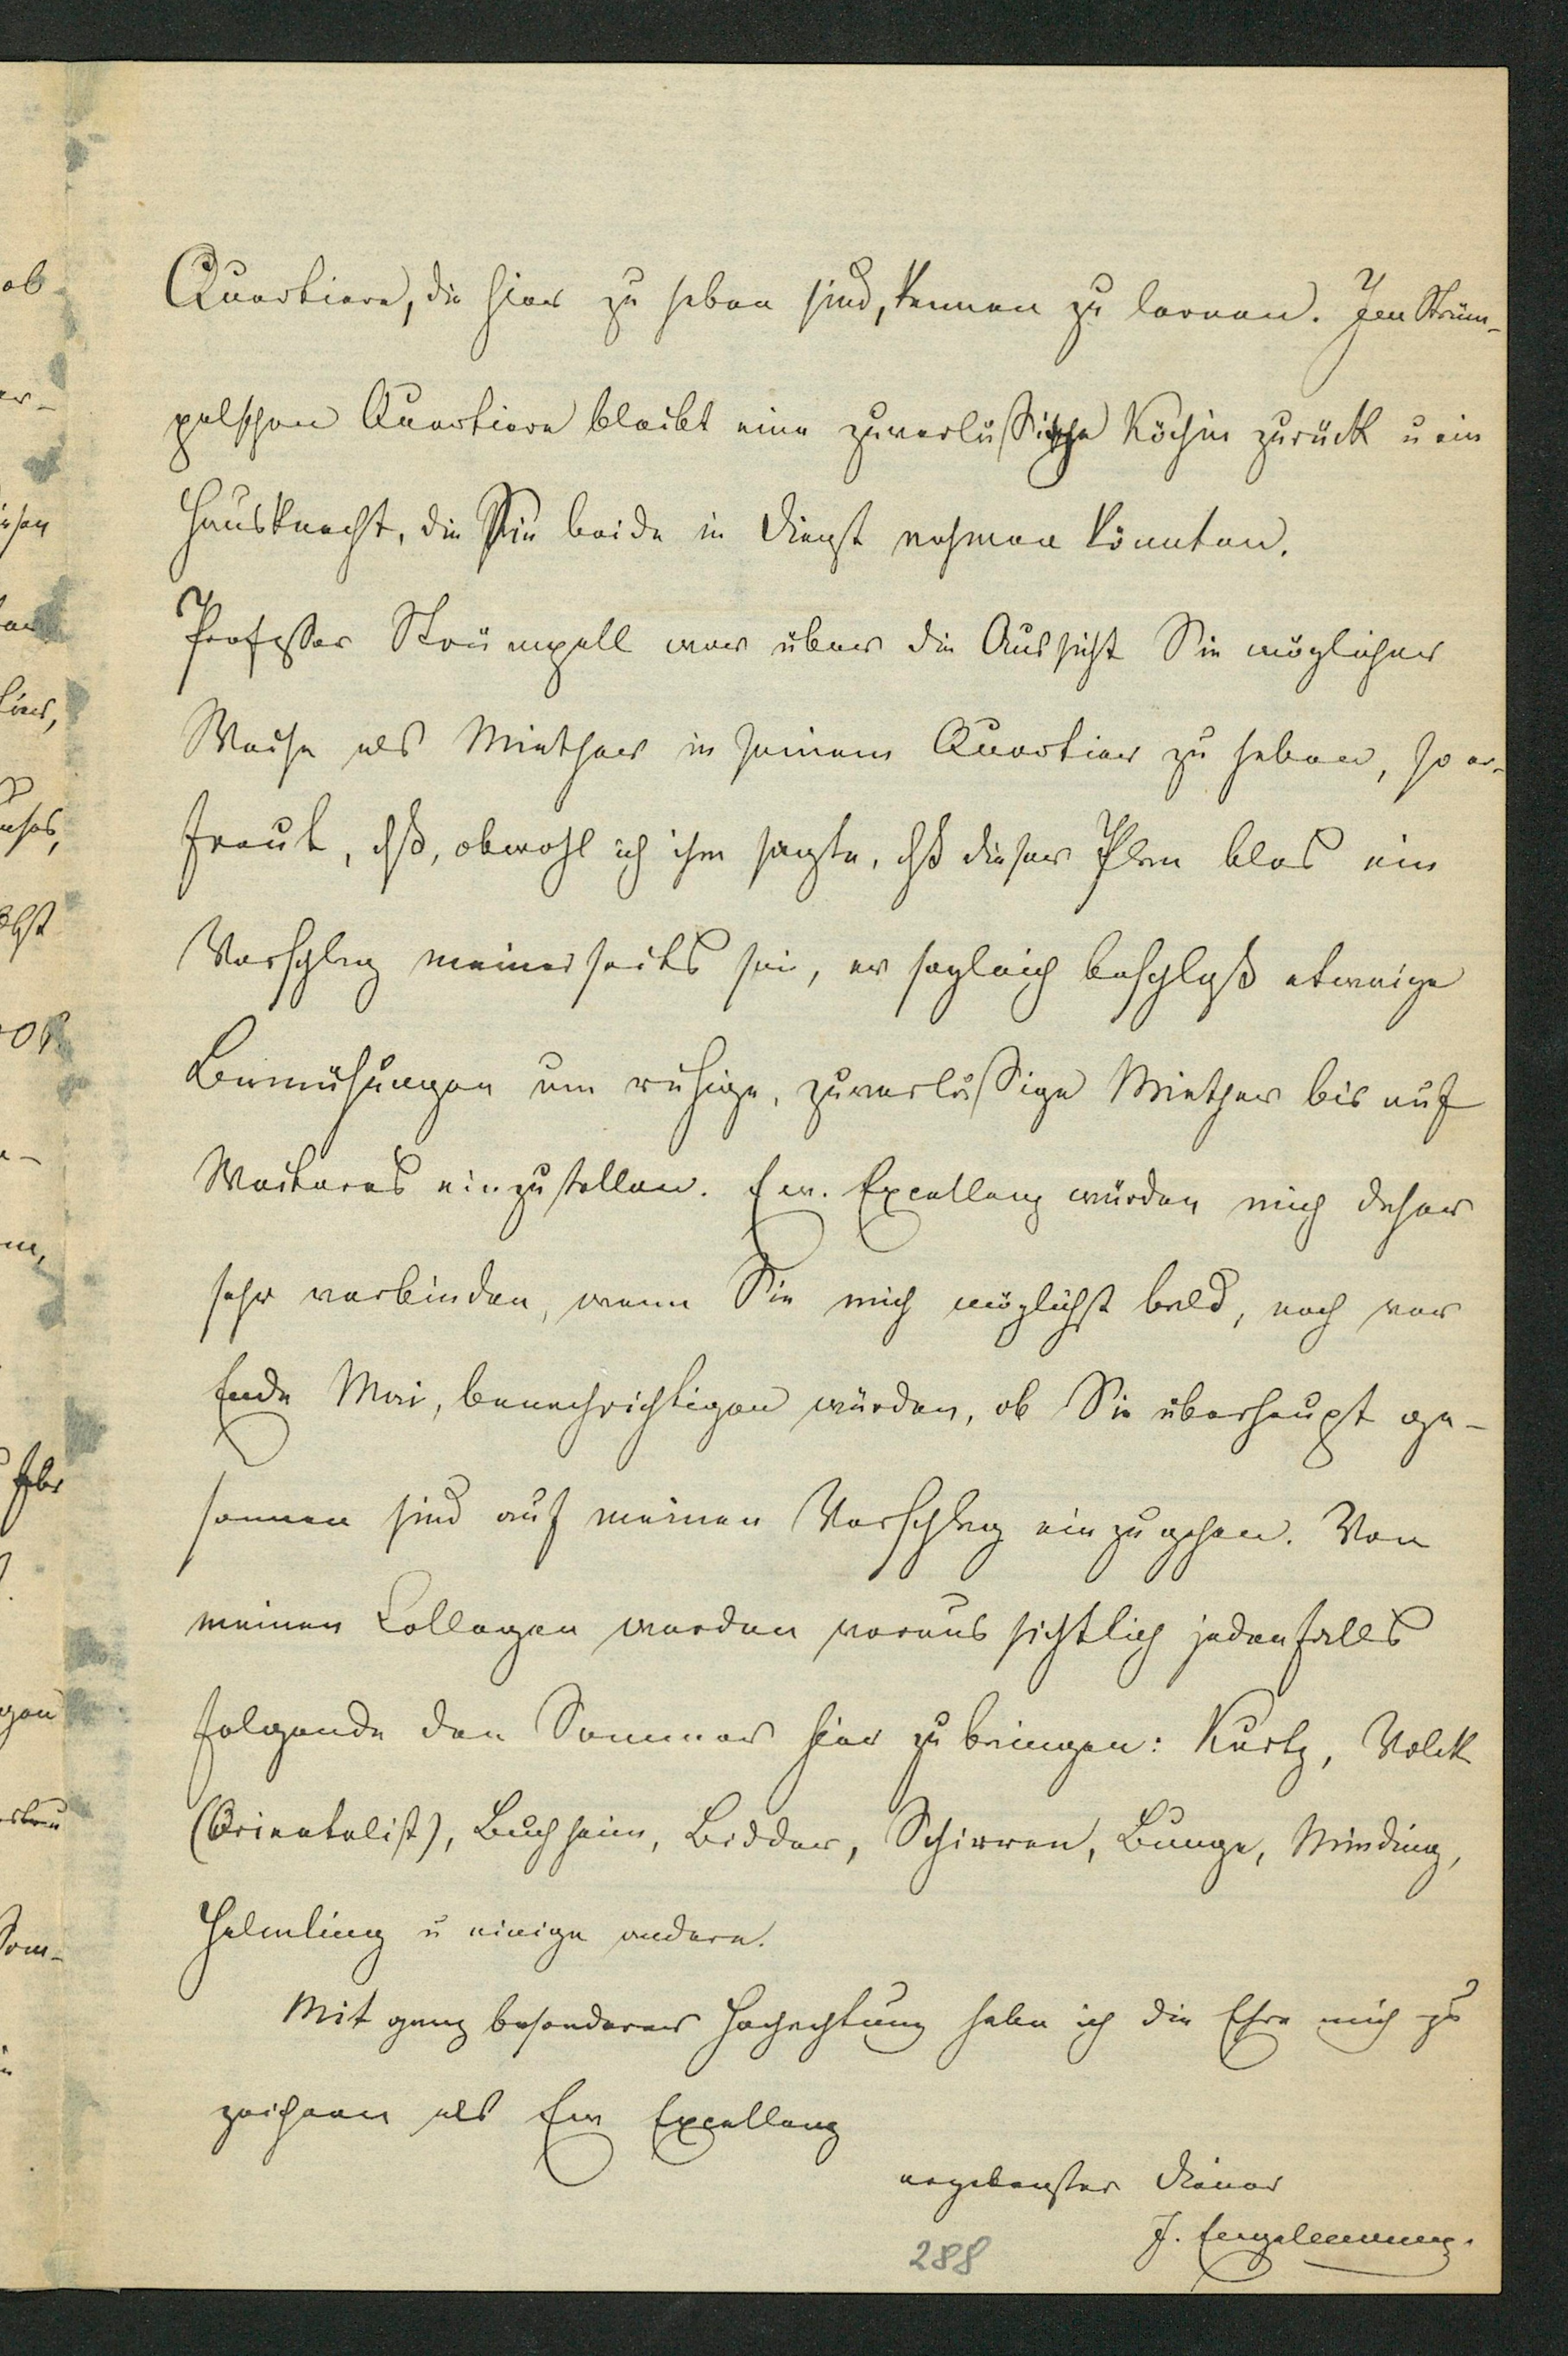 Quartiere, die hier zu haben sind, kennen zu lernen. Im Strüm-
pelschen Quartiere bleibt eine zuverlässige Köchin zurück u ein
Hausknecht, die Sie beide in Dienst nehmen könnten.
Professor Strümpell war über die Aussicht Sie möglicher
Weise als Miether in seinem Quartier zu haben, so er-
freut, dß, obwohl ich ihm sagte, dß dieser Plan blos ein
Vorschlag meinerseits sei, er sogleich beschloß etwaige
Bemühungen um ruhige, zuverlässige Miether bis auf
Weiteres einzustellen. Ew. Excellenz würden mich daher
sehr verbinden, wenn Sie mich möglichst bald, noch vor
Ende Mai, benachrichtigen würden, ob Sie überhaupt ge-
sonnen sind auf meinen Vorschlag einzugehen. Von
meinen Collegen werden voraussichtlich jedenfalls
folgende den Sommer hier zubringen: Kurtz, Volck
(Orientalist), Buchheim, Bidder, Schirren, Bunge, Minding,
Helmling u einige andere.
Mit ganz besonderer Hochachtung habe ich die Ehre mich zu
zeichnen als Ew Excellenz
ergebenster Diener
J. Engelmann.
288